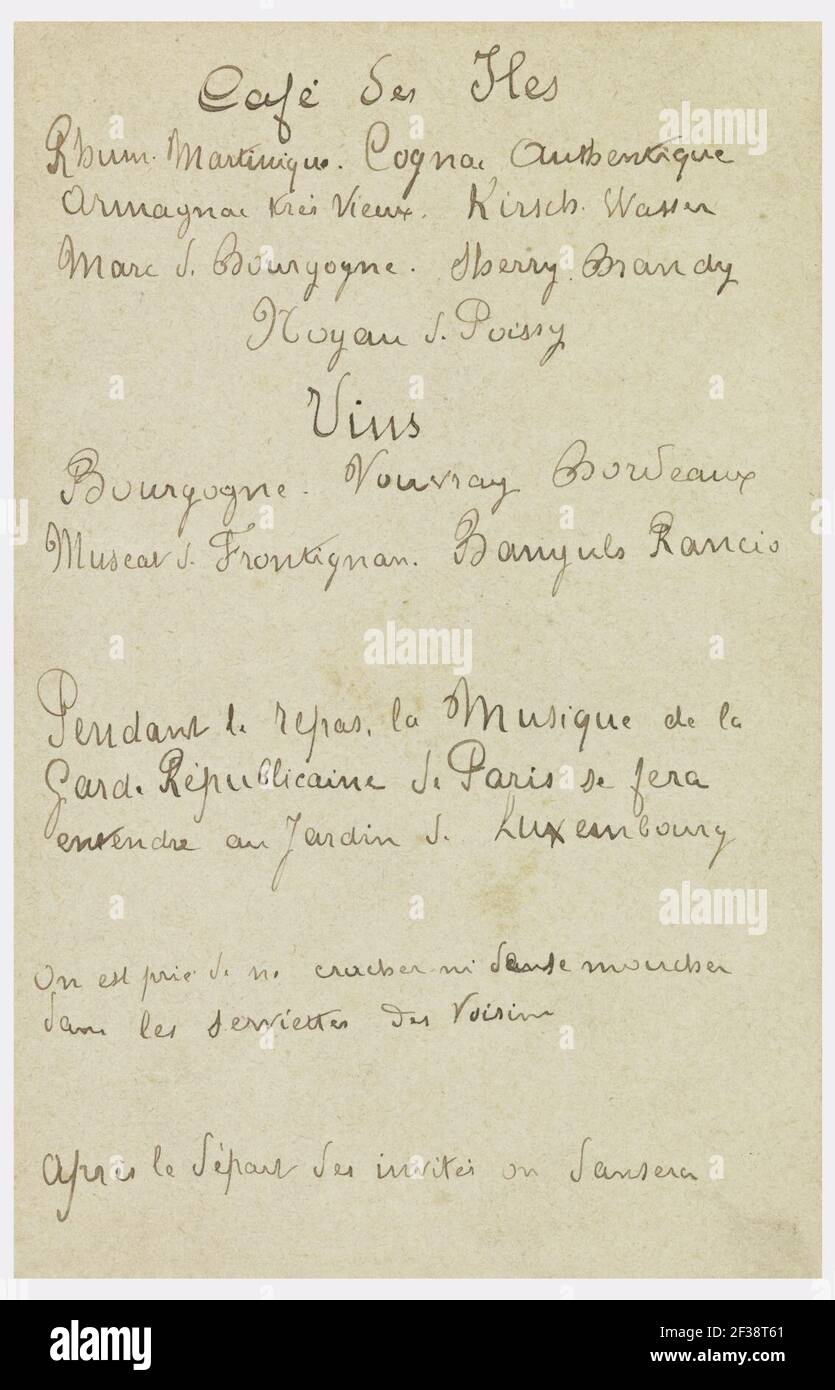 Café des Iles
Rhum. Martinique. Cognac Authentique
Armagnac très Vieux. Kirsch. Wasser
Marc d. Bourgogne. Sherry. Brandy
Noyau d. Poissy
Vins
Bourgogne. Vouvray Bordeaux
Muscat d. Frontignan. Banyuls Rancio
Pendant le repas, la Musique de la
Garde Républicaine de Paris se fera
entendre au Jardin d. Luxembourg
On est prié de ne cracher ni de se moucher
dans les serviettes des Voisins
Après le départ des invités on dansera
alamy
Image ID: 2F38T61
www.alamy.com